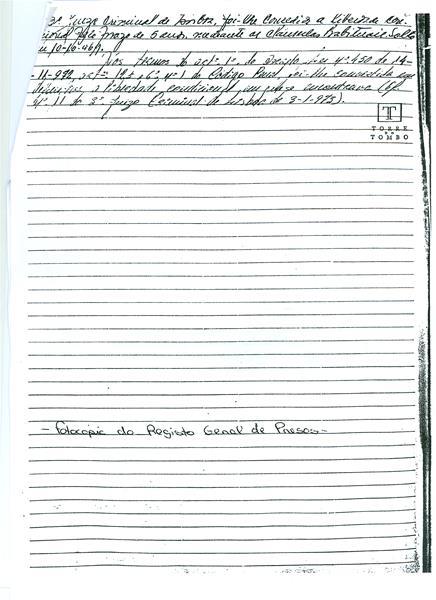 3º Juízo Criminal de Lisboa, foi-lhe concedida a liberdade con-
pelo prazo de 5 anos mediante as cláusulas habituais
10-16-
Nos termos do artº 1º do Decreto-Lei nº 450 de 14-
-11-972, artº 125 § 6º nº 1 do Código Penal, foi-lhe concedida
a liberdade condicional em que se encontrava (Of
nº 11 do 3º Juízo Criminal de Lisboa de 3-1-975).
T
TORRE
DO
TOMBO
- Fotocópia do Registo Geral de Presos -